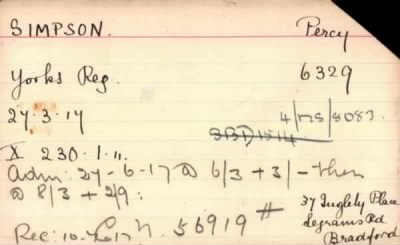 SIMPSON. Percy
Yorks Reg. 6329
27.3.17 4/MS/8083.
X 230.1.11.
Adm: 27-6-17 @ 6/3 + 3/- then
@ 8/3 + 2/9:
37 Inglety Place
Legrams Rd
Bradford
Rec: 56919 #